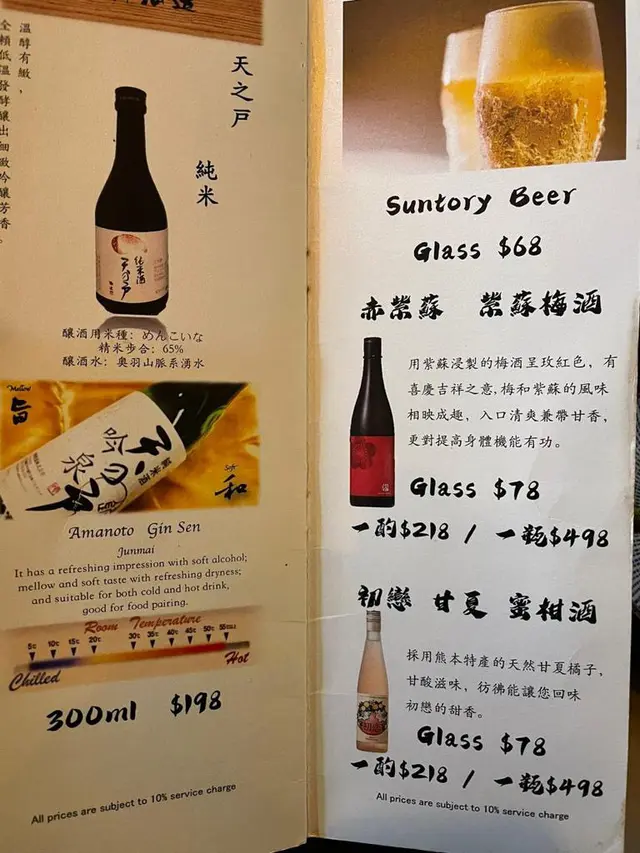 溫醇有緻，
全賴低溫發酵釀出細緻吟釀芳香。
天之戸
純米
純米酒
天の戸
釀酒用米種：めんこいな
精米步合：65%
釀酒水：奥羽山脈系湧水
Mellow
旨
純米酒
天の戸
吟泉
Soft
和
Amanoto Gin Sen
Junmai
It has a refreshing impression with soft alcohol;
mellow and soft taste with refreshing dryness;
and suitable for both cold and hot drink,
good for food pairing.
Room Temperature
5℃ 10℃ 15℃ 20℃ 30℃ 35℃ 40℃ 45℃ 50℃ 55℃
Chilled
Hot
300ml $198
All prices are subject to 10% service charge
Suntory Beer
Glass $68
赤紫蘇 紫蘇梅酒
用紫蘇浸製的梅酒呈玫紅色，有
喜慶吉祥之意，梅和紫蘇的風味
相映成趣，入口清爽兼帶甘香，
更對提高身體機能有功。
Glass $78
一酌$218 / 一瓶$498
初戀 甘夏 蜜柑酒
採用熊本特產的天然甘夏橘子，
甘酸滋味，彷彿能讓您回味
初戀的甜香。
Glass $78
一酌$218 / 一瓶$498
All prices are subject to 10% service charge